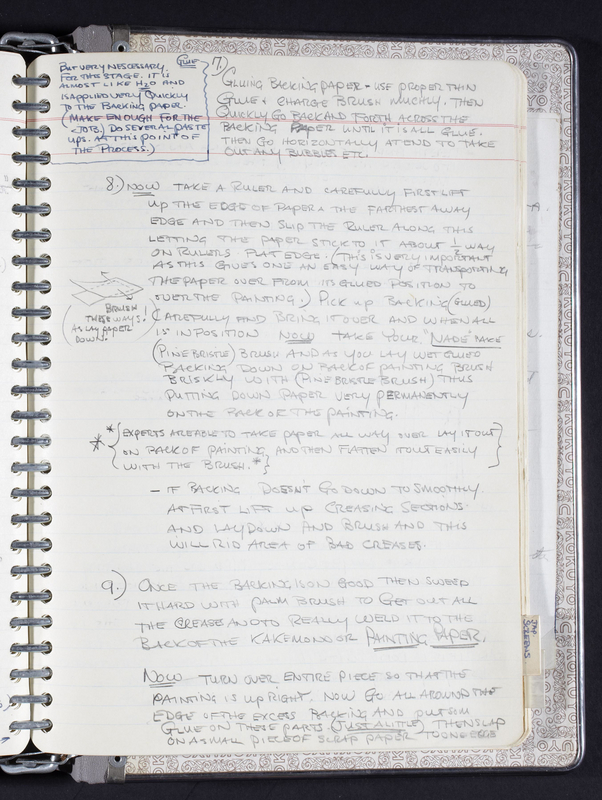 Glue
But very nescessary
for the stage. It is
almost like H2O and
is applied very quickly
to the backing paper.
(Make enough for the
Job.) Do several paste
ups. At this point of
the process.)
7.)
Gluing backing paper - use proper thin
glue & charge brush muchly. Then
quickly go back and forth across the
backing paper until it is all glue.
Then go horizontally at end to take
out any bubbles etc.
8.) Now take a ruler and carefully first lift
up the edges of paper & the farthest away
edge and then slip the ruler along this
letting the paper stick to it about 1/2 way
on rulers flat edge. (This is very important
as this gives one an easy way of transporting
the paper over from its glued position to
over the painting.) Pick up backing (glued)
carefully and bring it over and when all
is in position. Now take your "Nade" hake
(Pine bristle) brush and as you lay wet glued
backing down on back of painting brush
briskly with (pine bristle brush) thus
putting down paper very permanently
on the back of the painting.
Brush
these ways!
as lay paper
down.
* * {Experts are able to take paper all way over lay it out
on back of painting, and then flatten it out easily
with the brush.*}
- If backing doesn't go down to smoothly
at first lift up creasing sections
and lay down and brush and this
will rid area of bad creases.
9.) Once the backing is on good then sweep
it hard with palm brush to get out all
the crease and to really weld it to the
back of the kakemono or painting paper.
Now turn over entire piece so that the
painting is upright. Now go all around the
edge of the excess backing and put some
glue on these parts (just a little) then slap
on a small piece of scrap paper to one edge
JAP.
SCREENS
KOKUYO